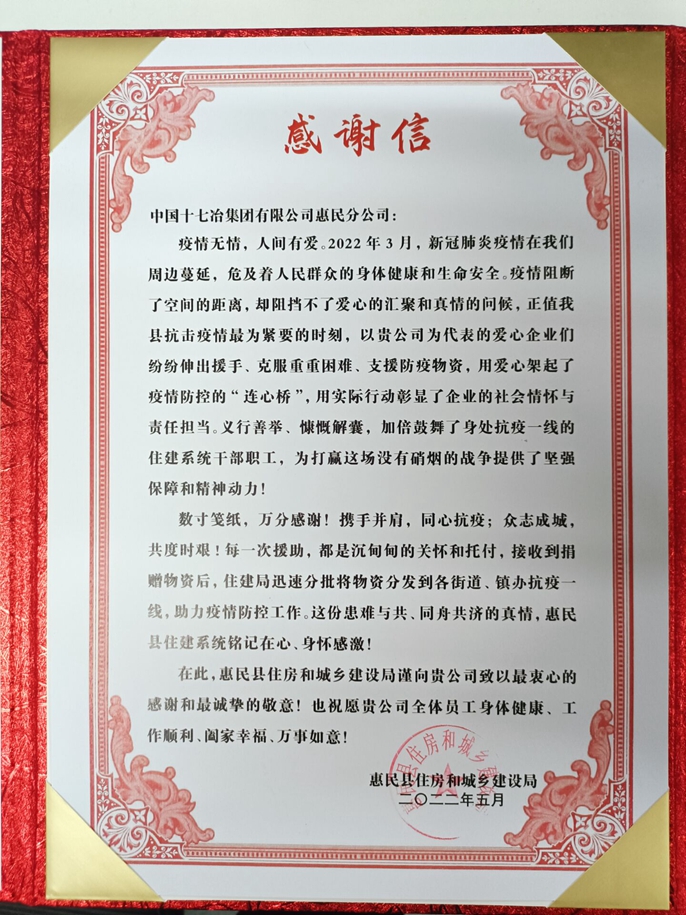 感谢信
中国十七冶集团有限公司惠民分公司：
疫情无情，人间有爱。2022年3月，新冠肺炎疫情在我们
周边蔓延，危及着人民群众的身体健康和生命安全。疫情阻断
了空间的距离，却阻挡不了爱心的汇聚和真情的问候，正值我
县抗击疫情最为紧要的时刻，以贵公司为代表的爱心企业们
纷纷伸出援手、克服重重困难、支援防疫物资，用爱心架起了
疫情防控的“连心桥”，用实际行动彰显了企业的社会情怀与
责任担当。义行善举、慷慨解囊，加倍鼓舞了身处抗疫一线的
住建系统干部职工，为打赢这场没有硝烟的战争提供了坚强
保障和精神动力！
数寸笺纸，万分感谢！携手并肩，同心抗疫；众志成城，
共度时艰！每一次援助，都是沉甸甸的关怀和托付，接收到捐
赠物资后，住建局迅速分批将物资分发到各街道、镇办抗疫一
线，助力疫情防控工作。这份患难与共、同舟共济的真情，惠民
县住建系统铭记在心、身怀感激！
在此，惠民县住房和城乡建设局谨向贵公司致以最衷心的
感谢和最诚挚的敬意！也祝愿贵公司全体员工身体健康、工
作顺利、阖家幸福、万事如意！
惠民县住房和城乡建设局
二〇二二年五月